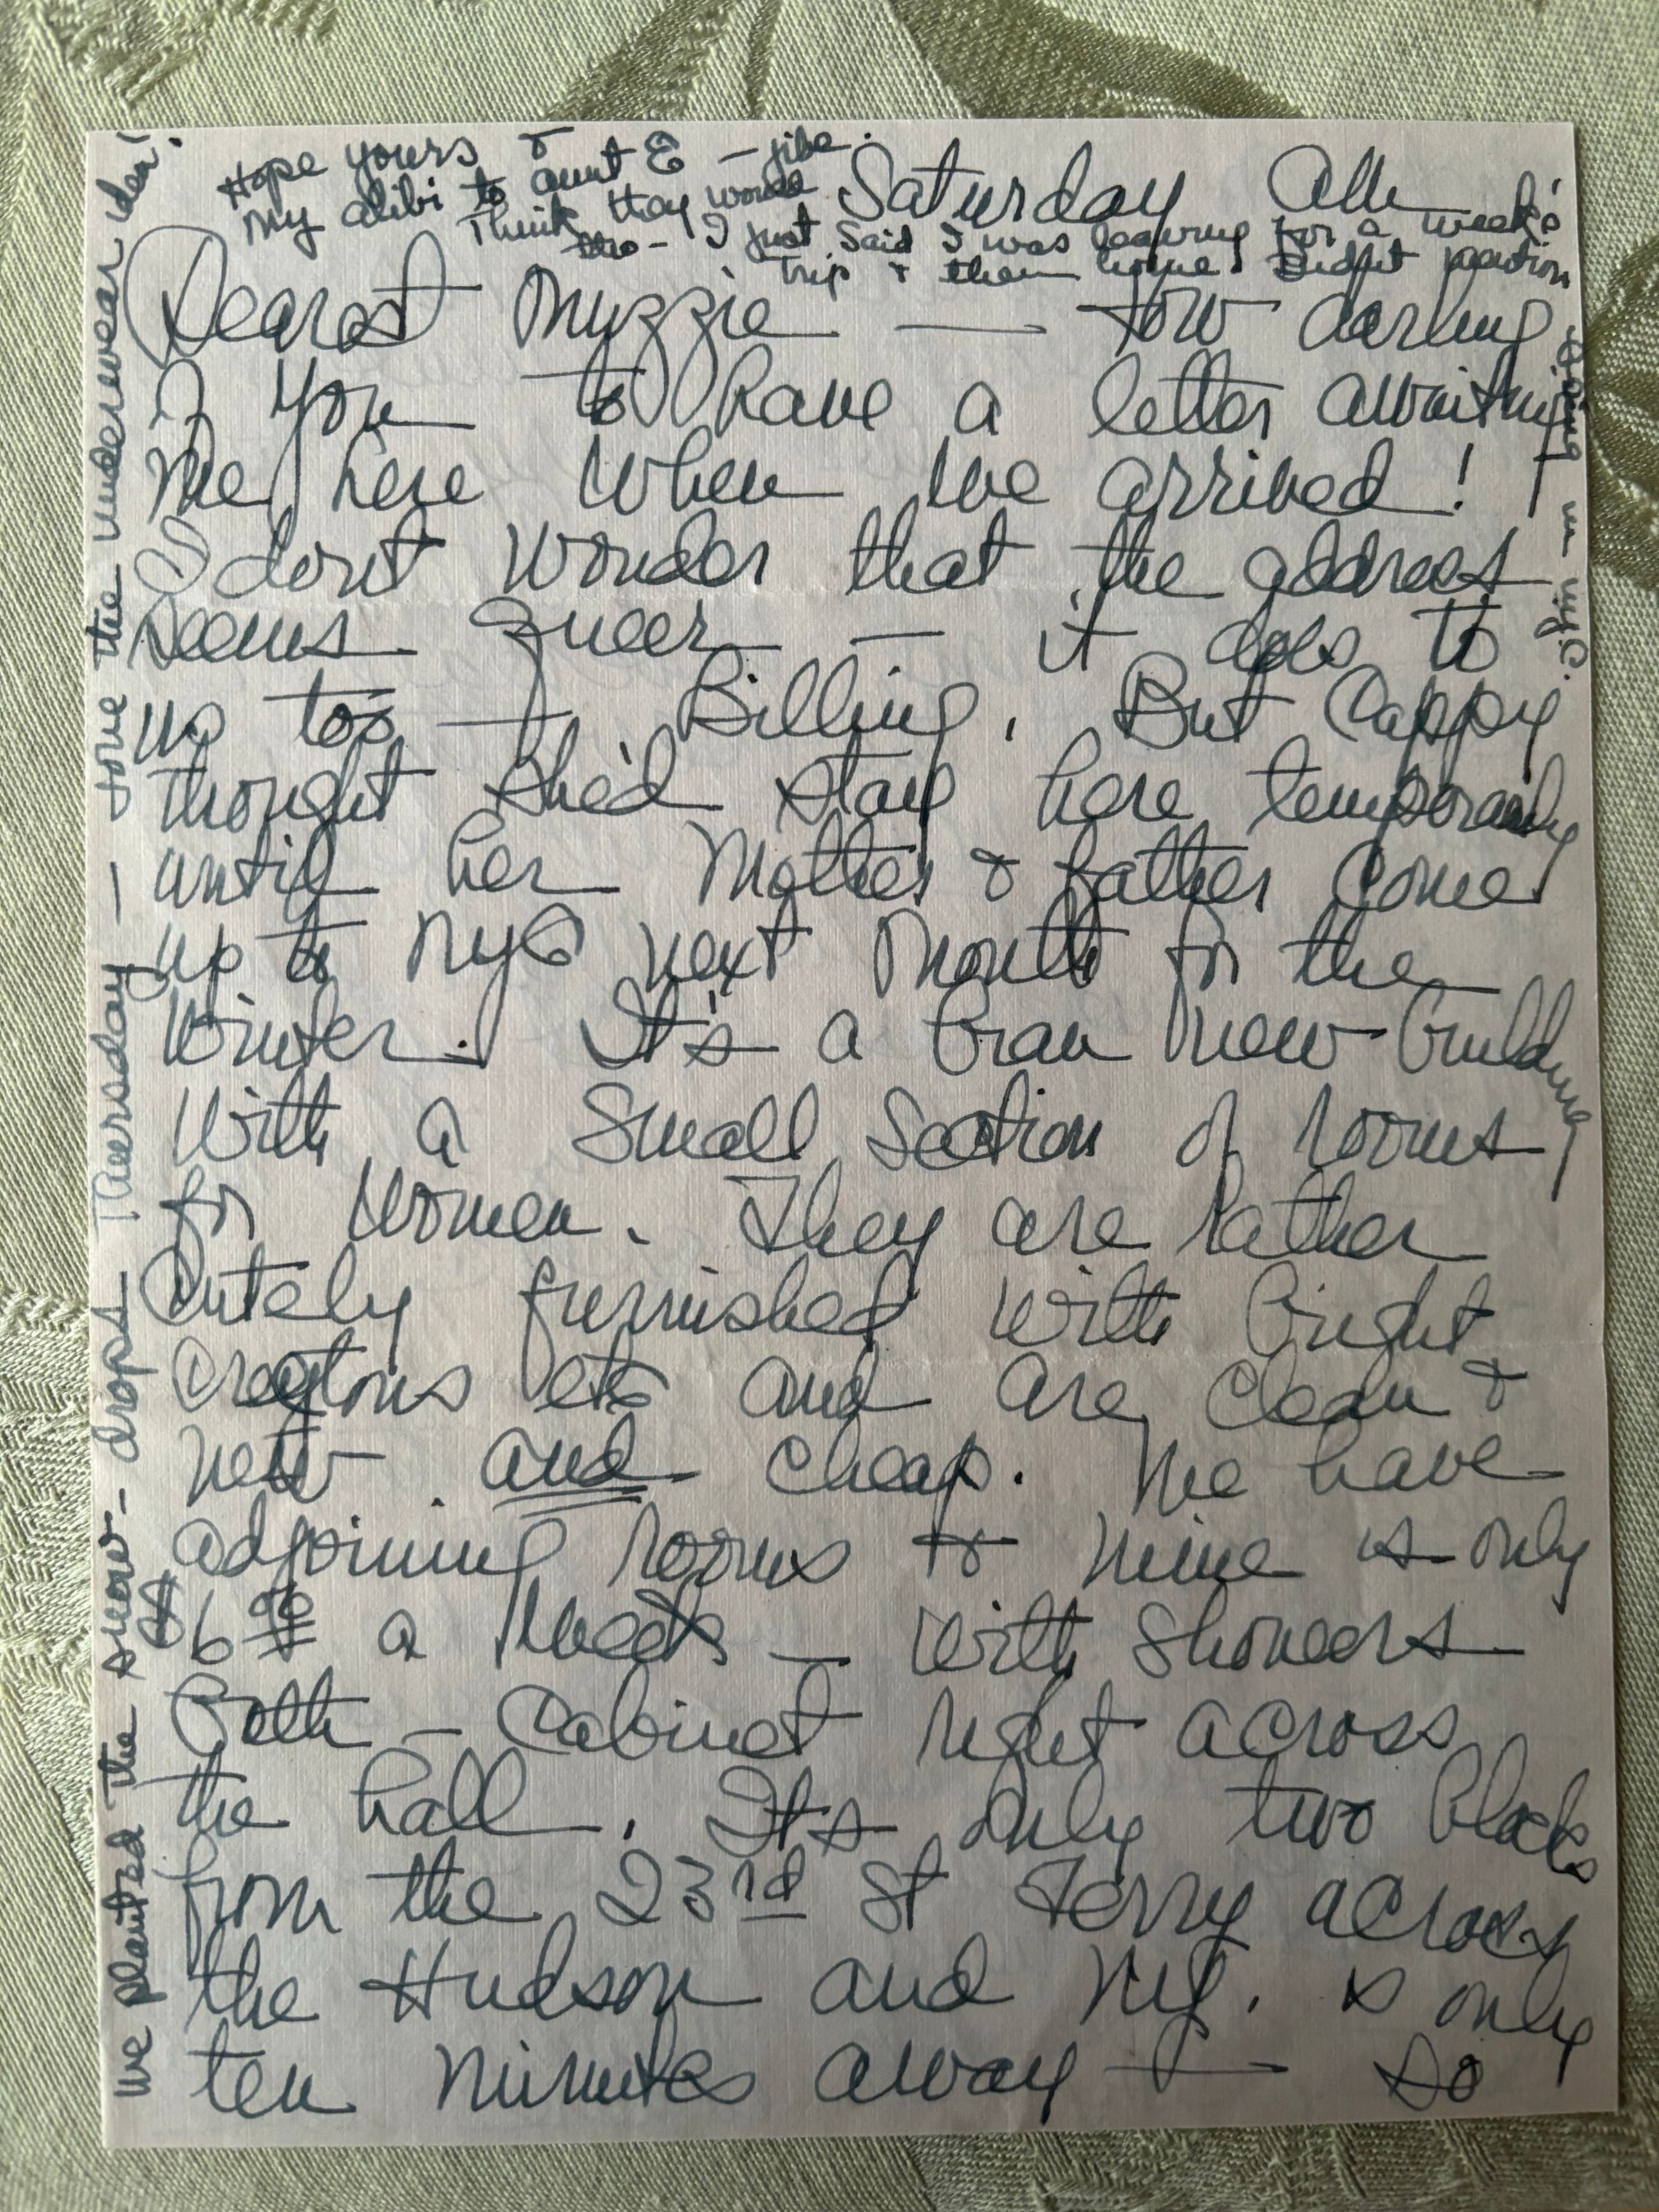 Hope yours &
my alibi to aunt E — jibe.
Think they would
tho — I just said I was leaving for a week's
trip & then home. Didn't mention
being in N.Y.C.
Saturday AM
Dearest Muzzie — How darling
of you to have a letter awaiting
me here when we arrived!
I don't wonder that the address
seems queer — it does to
us too — Billing. But Cappy
thought she'd stay here temporarily
until her Mother & father come
up to NYC next month for the
winter. It's a bran new building
with a small section of rooms
for women. They are rather
cutely furnished with bright
cretons etc and are clean &
new and cheap. We have
adjoining rooms & mine is only
$6.00 a week — with showers
Bath — cabinet right across
the hall. Its only two blocks
from the 23rd St Ferry across
the Hudson and N.Y. is only
ten minutes away — so
we planted the snow-drops Thursday — love the underwear idea!